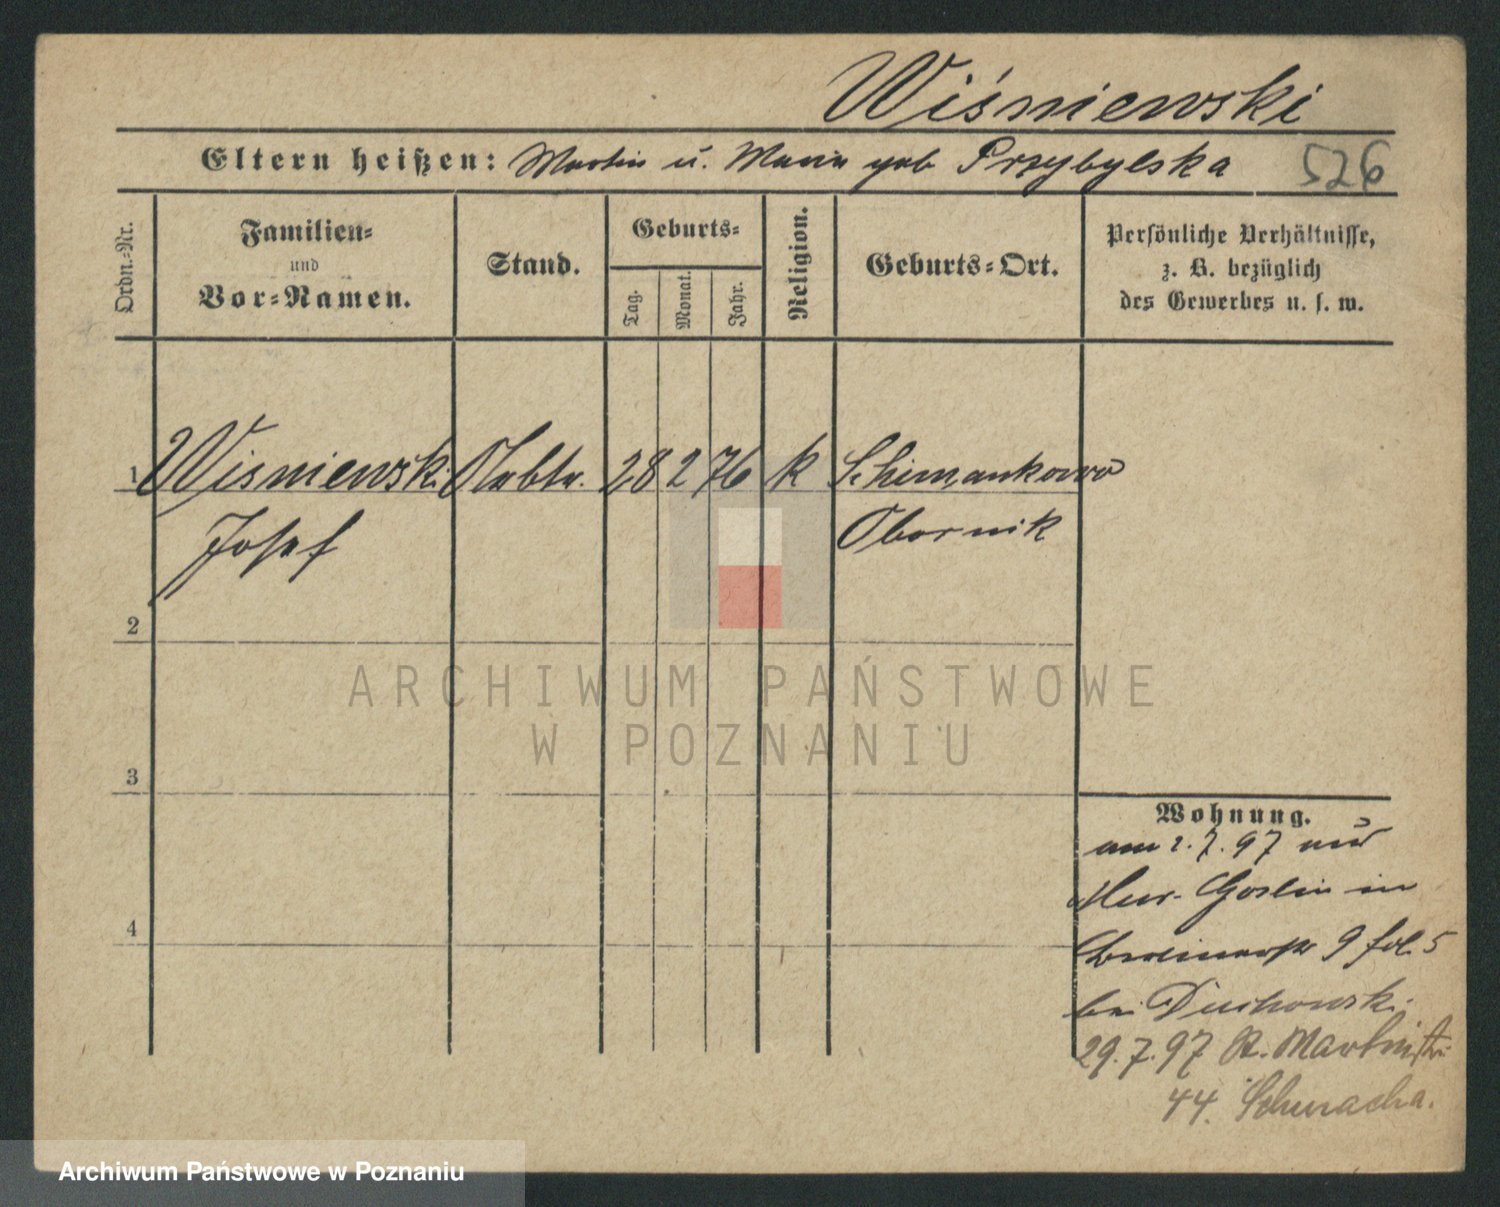 Wiśniewski
Eltern heißen: Martin u. Maria geb Przybylska 526
Ordn.-Nr.
Familien-
und
Vor-Namen.
Stand.
Geburts-
Tag.
Monat.
Jahr.
Religion.
Geburts-Ort.
Persönliche Verhältnisse,
z. B. bezüglich
des Gewerbes u. s. w.
1 Wisniewski Arbtr. 28 2 76 k Schimankowo
Josef Obornik
2
3
4
Wohnung.
am 2. 7. 97 aus
Mur. Goslin in
9 fol. 5
bei Duchowski
29. 7. 97 St. Martinstr.
44. Schuracha.
ARCHIWUM PAŃSTWOWE
W POZNANIU
Archiwum Państwowe w Poznaniu